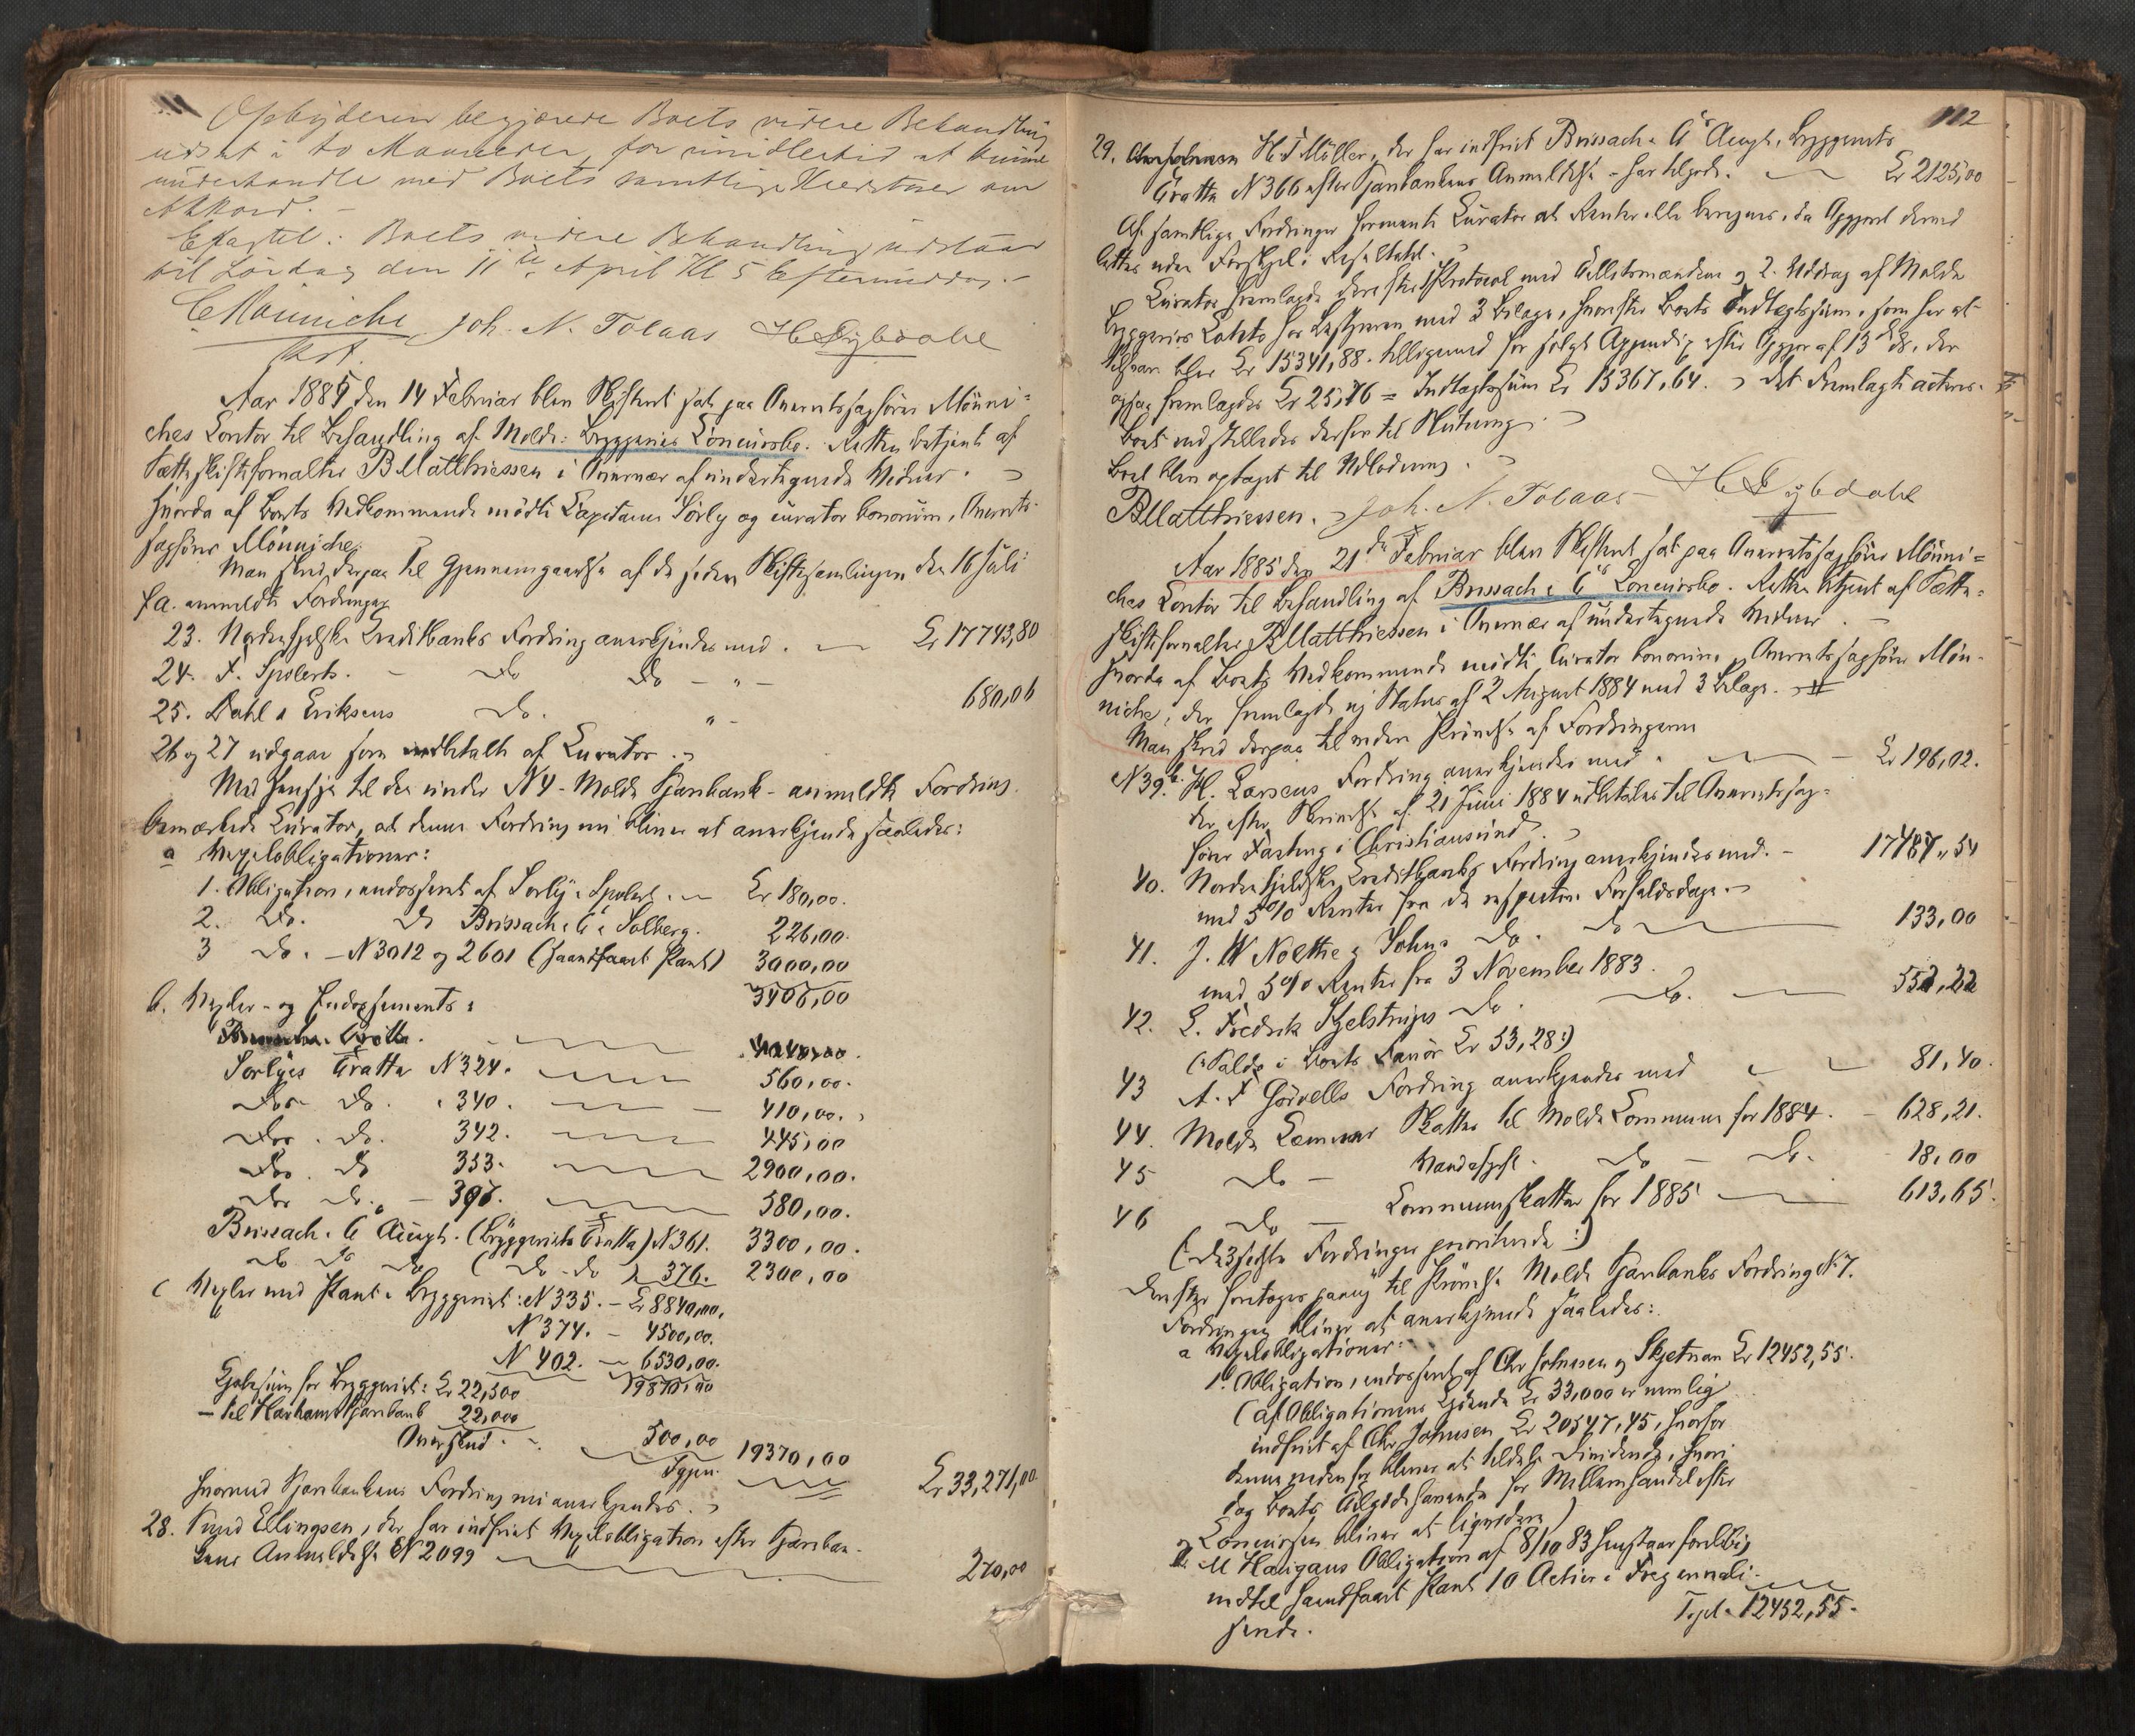 Opbyderen begjærede Boets videre Behandling
udsat i to Maaneder for imidlertid at kunne
underhandle med Boets samtlige Kreditorer om
Akkord. -
Eftertil: Boets videre Behandling udstaar
til Lørdag den 11te April Kl 5 Eftermiddag. -
CMönniche Joh. N. Tolaas H Dybdahl
Kst.
Aar 1885 den 14 Februar blev Skifteret sat paa Overretssagfører Mönni=
ches Kontor til Behandling af Molde Bryggeries Concursbo. Retten betjent af
Sætteskifteforvalter B Matthiessen i Overvær af undertegnede Vidner.
Hvorda af Boets Vedkommende mödte Kapitain Sörly og curator bonorum, Overrets-
sagfører Mönniche.
Man skred derpaa til Gjennemgaaelse af de siden Skiftesamlingen den 16 Juli
f.a. anmeldte Fordringer
23. Nordenfjelske Kreditbanks Fordring anerkjendes med. — Kr 17743,80
24. F. Spolerts. - Do Do - " -
25. Dahl & Eriksens Do. " - 680,06
26 og 27 udgaar som indbetalt af Curator.
Med Hensyn til den under N 4 - Molde Sparebank - anmeldte Fordring
bemærkede Curator, at denne Fordring nu bliver at anerkjende saaledes:
a Vexelobligationer:
1. Obligation, endosseret af Sörly & Spolert. — Kr 180,00.
2. Do. Do Brissach & Co & Solberg. 226,00.
3 Do. - N 3012 og 2601 (haandfaaet Pant) 3000,00
3406,00
b. Vexler - og Endossements:
Sörlyes Tratta N 324. 560,00.
Do Do. " 340. 410,00.
Do. Do. 342. 445,00
Do. Do 353. 2900,00.
Do Do. " - 397. 580,00.
Brissach & Co Aucept. (Bryggeriets Tratta) N 361. 3300,00.
Do Do Do ( Do - Do ) 376. 2300,00
c Vexler med Pant i Bryggeriet: N 335. - Kr 8840,00.
N 374. - 4500,00.
N 402. - 6530,00.
Kjøbesum for Bryggeriet: Kr 22,500 19870,00
- til Havhams Sparebank 22,000
Overskud. - 500,00 19370,00
Igjen. Kr 33,271,00
hvormed Sparebankens Fordring nu anerkjendes.
28. Knud Ellingsen, der har indfriet Vexelobligation efter Spareban-
kens Anmeldelse N 2099 270,00
112
29. H. J Möller, der har indfriet Brissach & Co's Accept, Bryggeriets
Tratta N 366 efter Sparebankens Anmeldelse - har tilgode. Kr 2125,00
Af samtlige Fordringer formente Curator at Renter ikke beregnes, da Opgjøret derved
lettes uden Forskjel i Resultatet.
Curator fremlagde derefter 1 Protocol med Tillitsmændene og 2. Uddrag af Molde
Bryggeries Conto for Bestyreren med 3 Bilage, hvorefter Boets Indtægtssum, som har at
tilsvare bliver Kr 15341,88. tilligemed for solgt Appendix efter Opgjør af 13 ds, der
ogsaa fremlagdes Kr 25,76 = Indtægtssum Kr 15367,64. Det Fremlagte acteres.
Boet indstilledes derfor til Slutning.
Boet blev optaget til Udlodning.
B Matthiessen. Joh. N. Tolaas H Dybdahl
Aar 1885 den 21de Februar blev Skifteret sat paa Overretssagfører Mönni=
ches Kontor til Behandling af Brissach & Co's Concursbo. Retten betjent af Sætte-
skifteforvalter B Matthiessen i Overvær af undertegnede Vidner. -
Hvorda af Boets Vedkommende mödte Curator bonorum, Overretssagfører Mön-
niche, der fremlagde ny Status af 2 August 1884 med 3 Bilage. #
Man skred derpaa til videre Prövelse af Fordringerne
N 39. H. Larsens Fordring anerkjendes med Kr 196,02.
der efter Skrivelse af 21 Juni 1884 udbetales til Overretssag-
förer Fasting i Christiansund.
40. Nordenfjeldske Kreditbanks Fordring anerkjendes med. - 17487,54
med 5% Renter fra de respective Forfaldsdage. -
41. J. W Nolthe & Sohns Do. Do 133,00
med 5% Renter fra 3 November 1883.
42. C. Fredrik Kjelstrups Do. Do. 552,22
(: Saldo i Boets Favör Kr 53,28:)
43 A. F Görvells Fordring anerkjendes med 81,40.
44. Molde Kæmner Skatter til Molde Commune for 1884. - 628,21.
45 Do - Vandafgift. Do - Do. 18,00
46 Do - Communeskatter for 1885 613,65.
(: De 3 sidste Fordringer prioriterede :)
Derefter foretoges paany til Prövelse Molde Sparebanks Fordring N 7.
Fordringen bliver at anerkjende saaledes:
a Vexelobligationer:
1. Obligation, endosseret af Chr Johnsen og Skjetnan Kr 12452,55.
(af Obligationens Lydende Kr 33,000 er nemlig
indfriet af Chr Johnsen Kr 20547,45, hvorfor
denne nedenfor bliver at tildele Dividende, hvori
dog Boets Tilgodehavende for Mellemhandel efter
Concursen bliver at liquidere)
M Haugans Obligation af 8/10 83 henstaar foreløbig
indtil haandfaaet Pant 10 Actier i Fræg
sende.
Tspt. 12452,55.